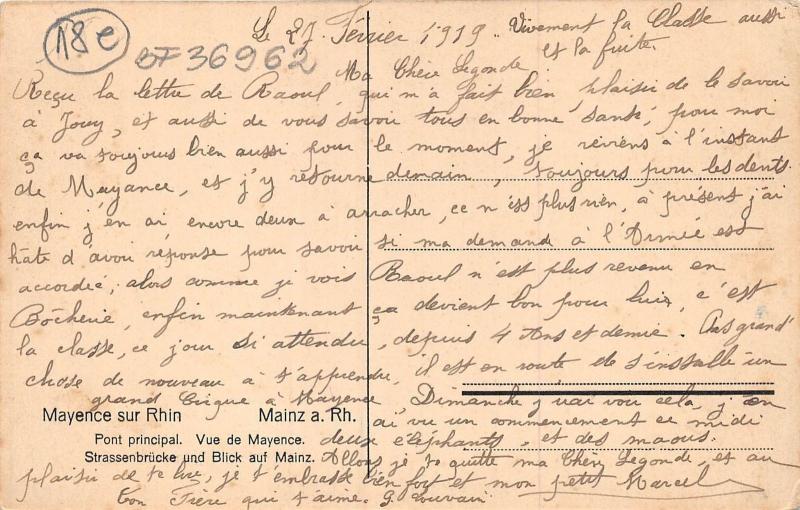 18e
DF 36962
Le 27 Février 1919. Vivement la Classe aussi
et la fuite.
Ma Chère Legonde
Reçu la lettre de Raoul, qui m'a fait bien plaisir de le savoir
à Jouy, et aussi de vous savoir tous en bonne santé, pour moi
ça va toujours bien aussi pour le moment, je reviens à l'instant
de Mayance, et j'y retourne demain, toujours pour les dents.
enfin j'en ai, encore deux à arracher, ce n'est plus rien, à présent j'ai
hâte d'avoir réponse pour savoir si ma demand à l'Armée est
accordée, alors comme je vois Raoul n'est plus revenu en
Bôcherie, enfin maintenant ça devient bon pour lui, c'est
la classe, ce jour si attendu, depuis 4 Ans et demie. Pas grand'
chose de nouveau à t'apprendre, il est en route de s'installé un
grand Cirque à Mayence Dimanche j'irai voir cela, j'en
ai vu un commencement ce midi
deux éléphants, et des
Mayence sur Rhin Mainz a. Rh.
Pont principal. Vue de Mayence.
Strassenbrücke und Blick auf Mainz.
Allons je te quitte ma Chère Legonde, et au
plaisir de te lire, je t'embrasse bien fort et mon petit Marcel
Ton Frère qui t'aime. G. Louvain